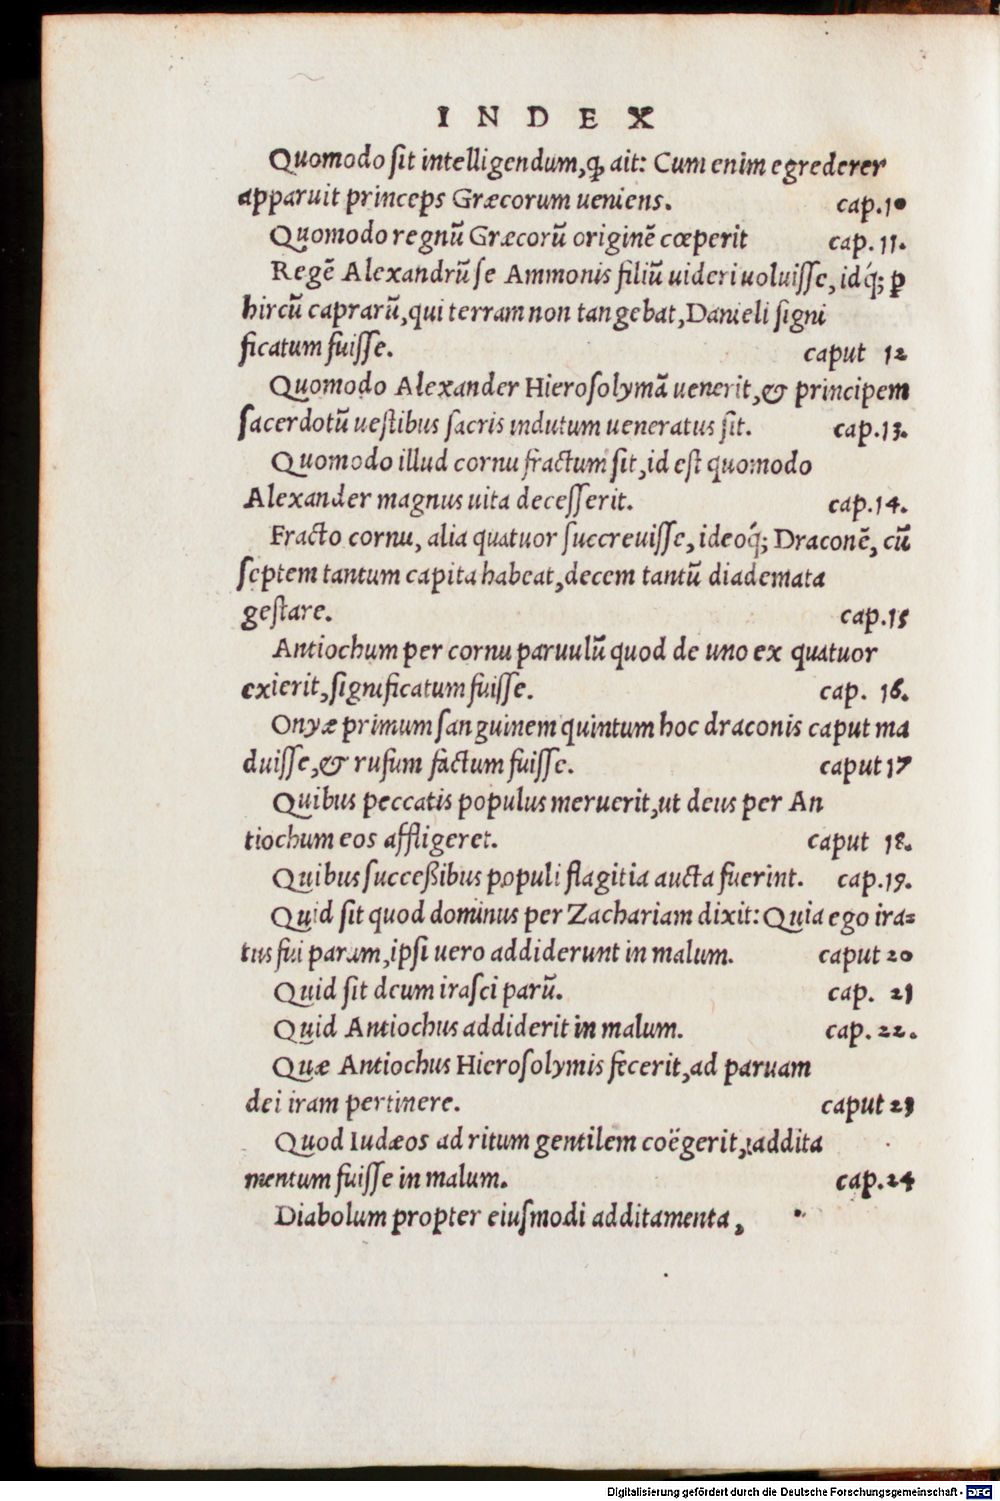 INDEX
Quomodo sit intelligendum, ꝙ ait: Cum enim egrederer
apparuit princeps Græcorum ueniens. cap.10
Quomodo regnũ Græcorũ originẽ cœperit cap.11.
Regẽ Alexandrũ se Ammonis filiũ uideri uoluisse, idq́; ꝑ
hircũ caprarũ, qui terram non tangebat, Danieli signi
ficatum fuisse. caput 12
Quomodo Alexander Hierosolymã uenerit, & principem
sacerdotũ uestibus sacris indutum ueneratus sit. cap.13.
Quomodo illud cornu fractum sit, id est quomodo
Alexander magnus uita decesserit. cap.14.
Fracto cornu, alia quatuor succreuisse, ideoq́; Draconẽ, cũ
septem tantum capita habeat, decem tantũ diademata
gestare. cap.15
Antiochum per cornu paruulũ quod de uno ex quatuor
exierit, significatum fuisse. cap. 16.
Onyæ primum sanguinem quintum hoc draconis caput ma
duisse, & rufum factum fuisse. caput 17
Quibus peccatis populus meruerit, ut deus per An
tiochum eos affligeret. caput 18.
Quibus succeßibus populi flagitia aucta fuerint. cap.19.
Quid sit quod dominus per Zachariam dixit: Quia ego ira=
tus fui parum, ipsi uero addiderunt in malum. caput 20
Quid sit deum irasci parũ. cap. 21
Quid Antiochus addiderit in malum. cap. 22.
Quæ Antiochus Hierosolymis fecerit, ad paruam
dei iram pertinere. caput 23
Quod Iudæos ad ritum gentilem coëgerit, addita
mentum fuisse in malum. cap.24
Diabolum propter eiusmodi additamenta,
Digitalisierung gefördert durch die Deutsche Forschungsgemeinschaft - DFG